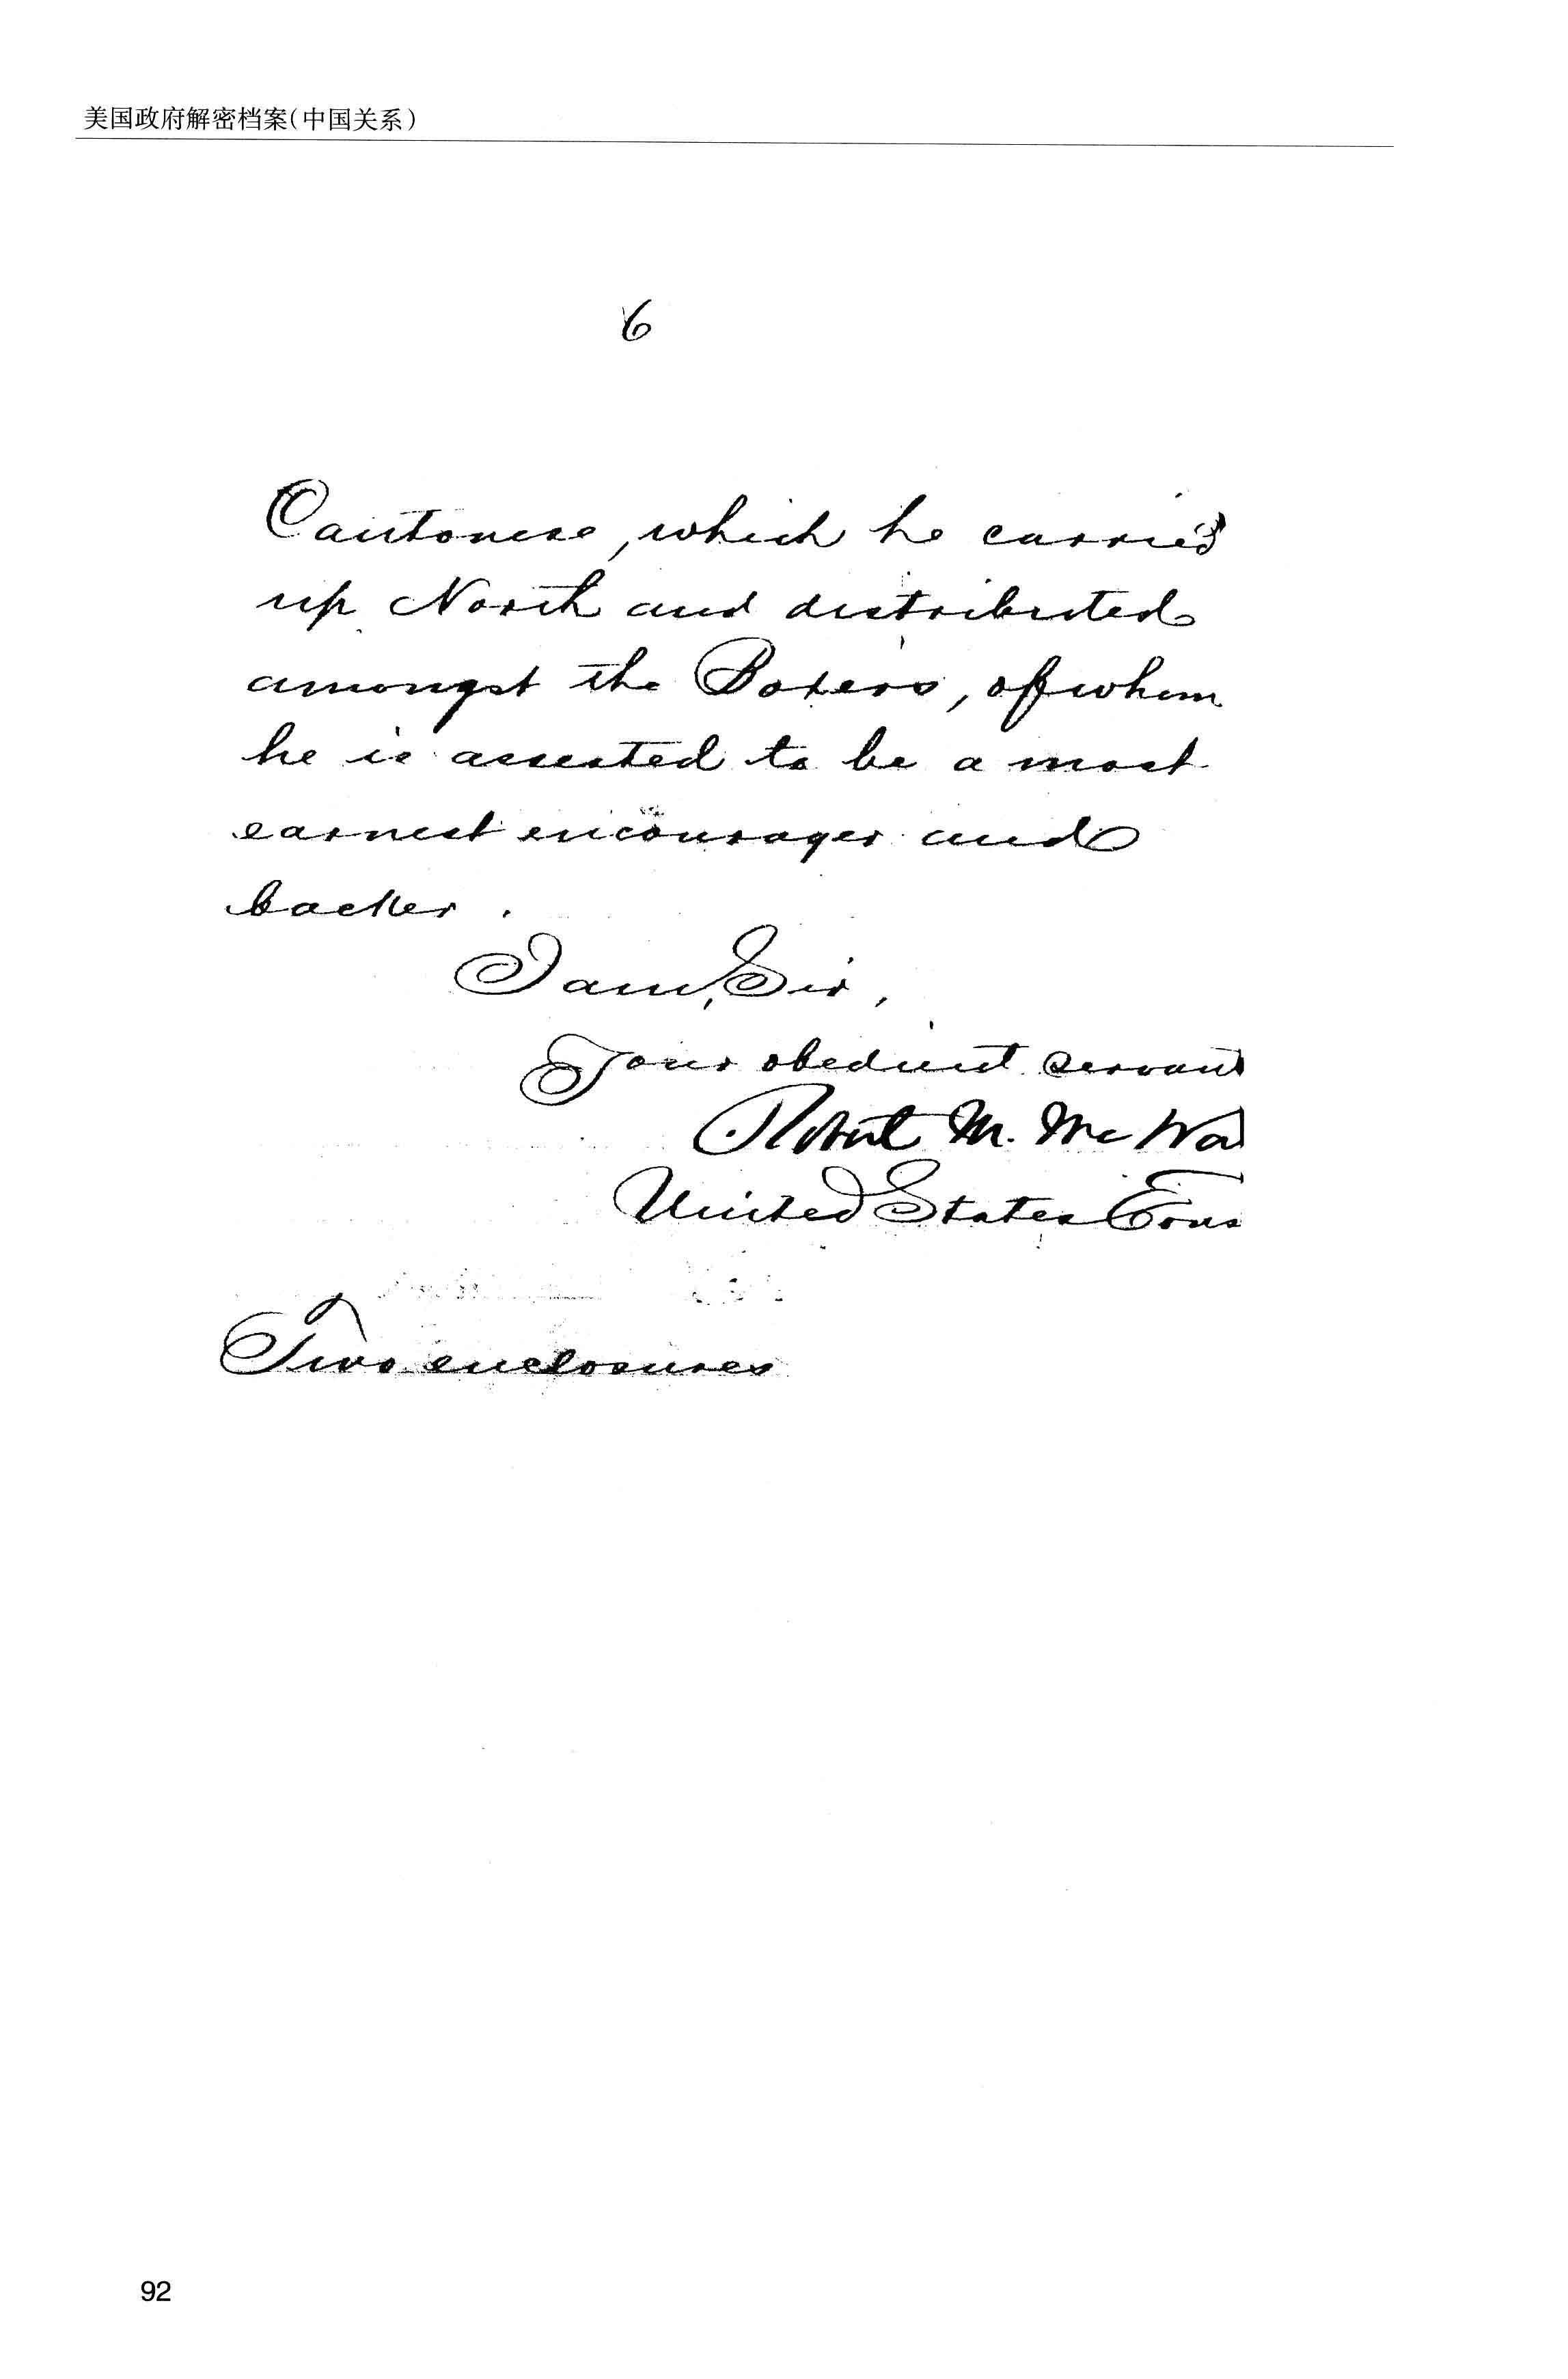 美国政府解密档案(中国关系)
6
Cantonese, which he carried
up North and distributed
amongst the Boxers, of whom
he is asserted to be a most
earnest encourager and
backer.
I am, Sir,
Your obedient servant
Robert M. McWa
United States Cons
Two enclosures
92